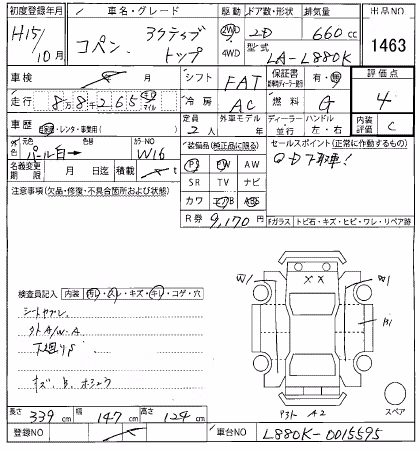 初度登録年月 車名・グレード 駆動 ドア数・形状 排気量 出品NO
H15/10月 コペン アクティブトップ 2WD 4WD 2D 660cc 1463
型式 LA-L880K
車検 年 月 シフト FAT 保証書 有・無 評価点
走行 8万8千265 キロ マイル 冷房 AC 燃料 G 4
車歴 自家用・レンタ・事業用( ) 定員 2人 外車モデル 年 ディーラー・並行 ハンドル 左・右 内装評価 C
外色 元色 パール白→ 色替 カラーNO W16
名義変更期限 月 日迄 積載 t
装備品(純正品に限る) PS PW AW SR TV ナビ カワ エアB ABS
セールスポイント(正常に作動するもの)
QD下取車!
注意事項(欠品・修復・不具合箇所および状態)
R券 9,170円 Fガラス トビ石・キズ・ヒビ・ワレ・リペア跡
検査員記入 内装 汚れ・スレ・キズ・キレ・コゲ・穴
シートヤブレ
下廻りサビ
W1 XX W1
B1
A2
スペア
長さ 339cm 幅 147cm 高さ 124cm
登録NO 車台NO L880K-0015595